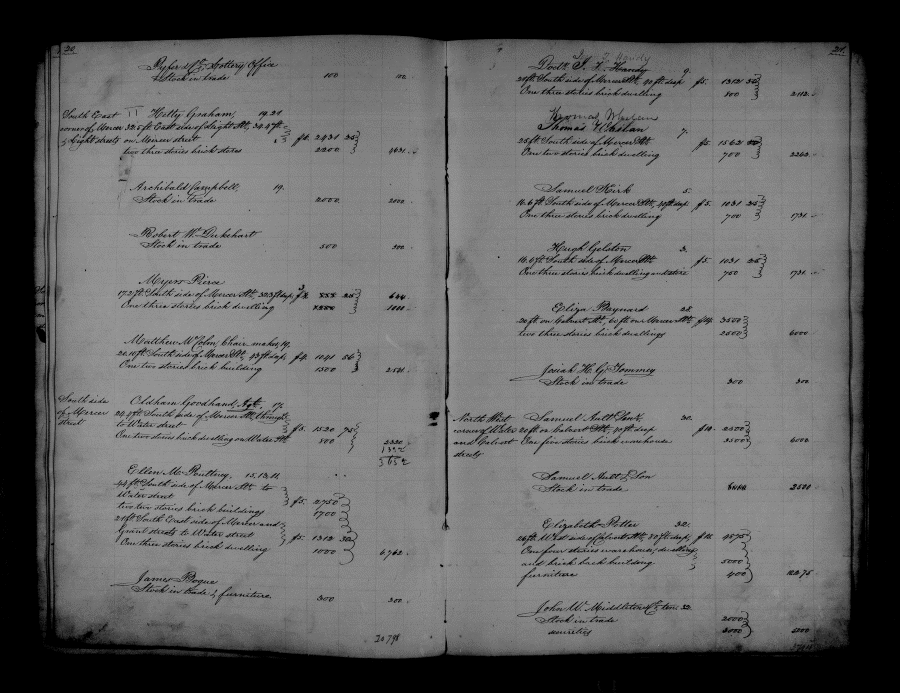 20
Pyfer & Co Lottery Office
Stock in trade 100 100
South East Hetty Graham, 19.21
corner of Mercer 32.5 ft East side of Light St, 34.47 ft
& Light streets on Mercer street f8. 2431 25
two three stories brick stores 2200 4631
Archibald Campbell, 19.
Stock in trade 2000 2000
Robert W. Duckehart
Stock in trade 500 500
Myers Pierce
17.2 ft South side of Mercer St, 32.3 ft deep 25 644
One three stories brick dwelling 1000
Matthew McColm, Chair maker, 19.
20.10 ft South side of Mercer St, 43 ft deep f4. 1041 56
One two stories brick building 1500 2541
South side Oldham Goodhand Agt. 17.
of Mercer 24.4 ft South side of Mercer St, through
street to Water street f5. 1520 75
One two stories brick dwelling on Water St 800 2320
1332
3652
Ellen M. Poultney 15.13.11.
44 ft South side of Mercer St to
Water street f5. 2750
two two stories brick buildings 1700
21 ft South East side of Mercer and
Grant streets to Water street f5. 1312 30
One three stories brick dwelling 1000 6,762
James Bogue
Stock in trade & furniture 300 300
20798
21.
Handy
Doct. J. F. Handy 9.
21 ft South side of Mercer St, 40 ft deep f5. 1312 50
One three stories brick dwelling 800 2112
Thomas
Thomas Whelan 7.
25 ft South side of Mercer St f5. 1562 50
One two stories brick dwelling 700 2262
Samuel Kirk 5.
16.6 ft South side of Mercer St, 40 ft deep f5. 1031 25
One three stories brick dwelling 700 1731
Hugh Gelston 3.
16.6 ft South side of Mercer St f5. 1031 25
One three stories brick dwelling and store 700 1731
Eliza Baynard 28.
20 ft on Calvert St, 60 ft on Mercer St 3500
two three stories brick dwellings 2500 6000
Josiah H. G. Tommey
Stock in trade 300 300
North West Samuel Ault 30.
corner of Water 20 ft on Calvert St, 40 ft deep f10. 2500
and Calvert One five stories brick warehouse 3500 6000
streets
Samuel Ault & Son
Stock in trade 2500
Elizabeth Potter 32.
26 ft West side of Calvert St, 80 ft deep, 4875
One four stories warehouse, dwelling
and brick back building 5000
furniture 400
John W. Middleton 32
Stock in trade 2000
securities